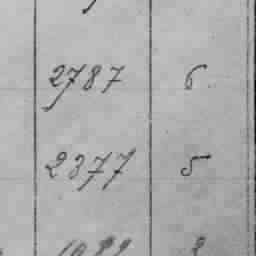 2787 6
2377 5